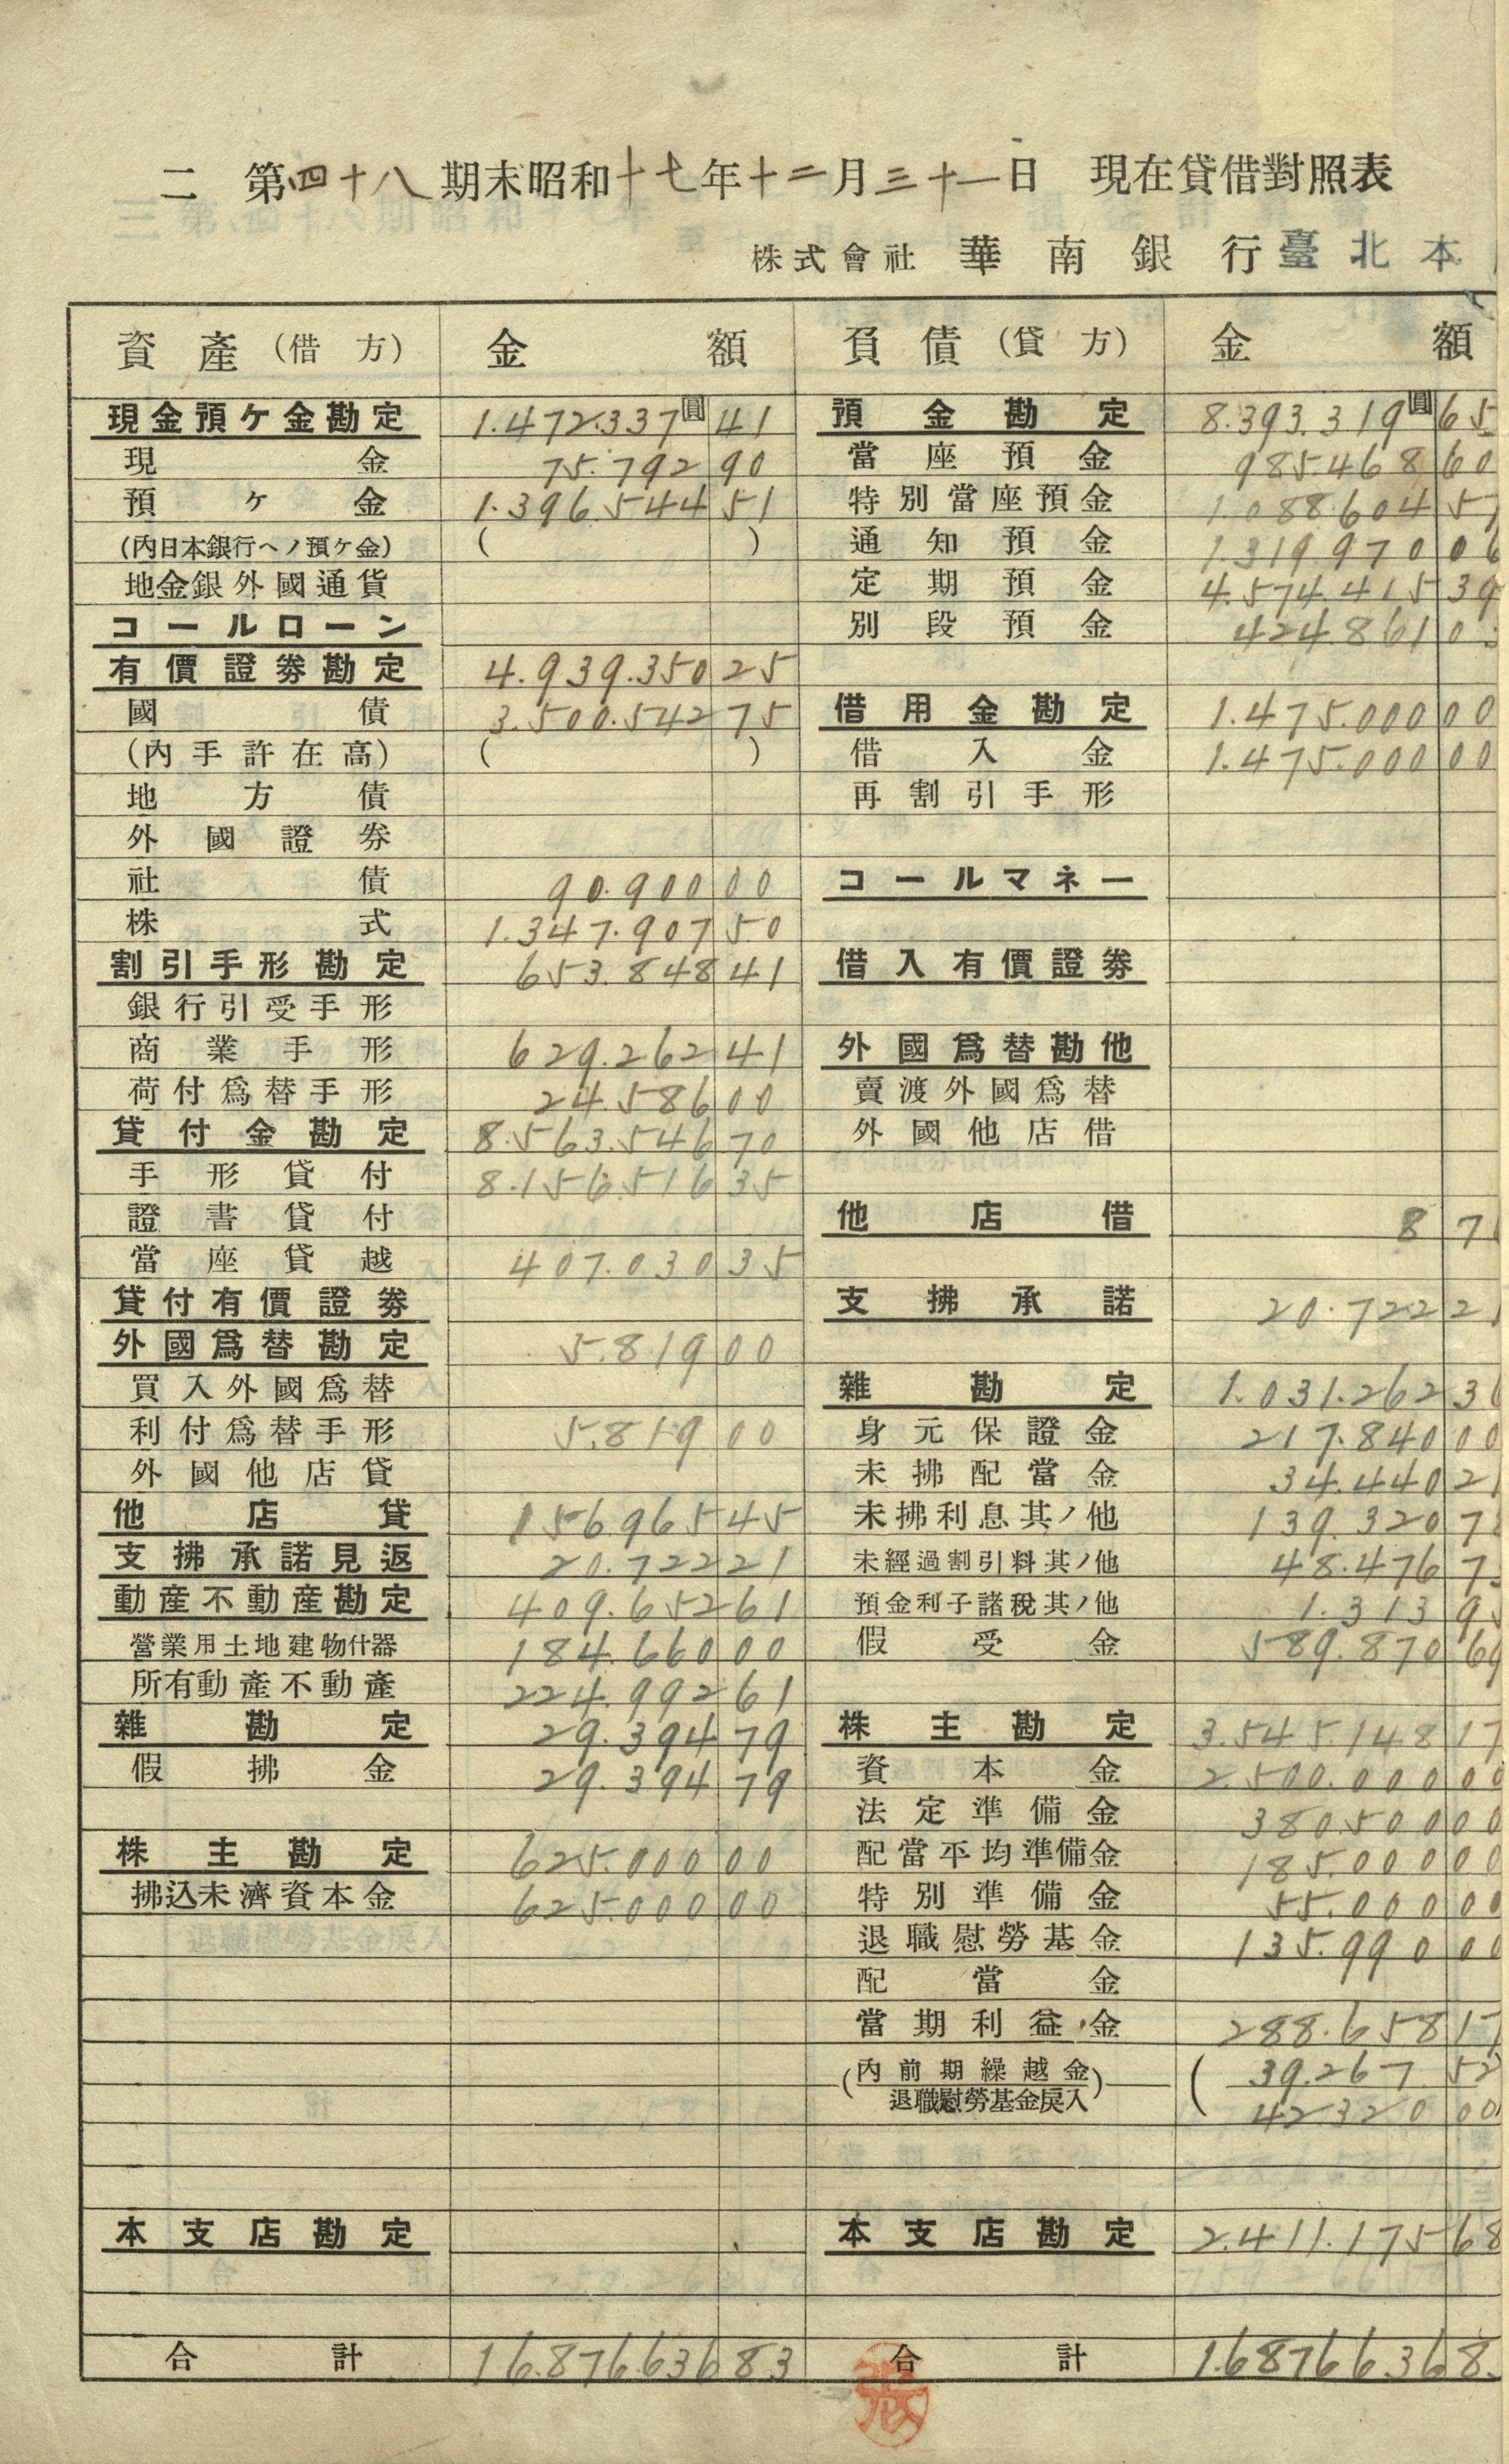 二 第四十八期末昭和十七年十二月三十一日 現在貸借對照表
株式會社 華南銀行臺北本
資產(借方) 金額 負債(貸方) 金額
現金預ケ金勘定 1.472.337圓41 預金勘定 8.393.319圓65
現金 75.792 90 當座預金 985.468 60
預ケ金 1.396.544 51 特別當座預金 1.088.604 57
(內日本銀行ヘノ預ケ金) ( ) 通知預金 1.319.970 06
地金銀外國通貨 定期預金 4.574.415 39
コールローン 別段預金 424.861 0
有價證劵勘定 4.939.350 25
國債 3.500.542 75 借用金勘定 1.475.000 00
(內手許在高) ( ) 借入金 1.475.000 00
地方債 再割引手形
外國證券
社債 90.900 00 コールマネー
株式 1.347.907 50
割引手形勘定 653.848 41 借入有價證劵
銀行引受手形
商業手形 629.262 41 外國爲替勘他
荷付爲替手形 24.586 00 賣渡外國爲替
貸付金勘定 8.563.546 70 外國他店借
手形貸付 8.156.516 35
證書貸付 他店借 8 7
當座貸越 407.030 35
貸付有價證劵 支拂承諾 20.722 2
外國爲替勘定 5.819 00
買入外國爲替 雜勘定 1.031.262 3
利付爲替手形 5.819 00 身元保證金 217.840 00
外國他店貸 未拂配當金 34.440 21
他店貸 156.965 45 未拂利息其ノ他 139.320 7
支拂承諾見返 20.722 21 未經過割引料其ノ他 48.476 7
動產不動產勘定 409.652 61 預金利子諸稅其ノ他 1.313 9
營業用土地建物什器 184.660 00 假受金 589.870 69
所有動產不動產 224.992 61
雜勘定 29.394 79 株主勘定 3.545.148 17
假拂金 29.394 79 資本金 2.500.000 00
法定準備金 380.500 00
株主勘定 625.000 00 配當平均準備金 185.000 00
拂込未濟資本金 625.000 00 特別準備金 55.000 00
退職慰勞基金 135.990 00
配當金
當期利益金 288.658 17
(內前期繰越金 (39.267 52
退職慰勞基金戾入) 42.320 00)
本支店勘定 本支店勘定 2.411.175 68
合計 16.876.636 83 合計 16.876.636 8
張